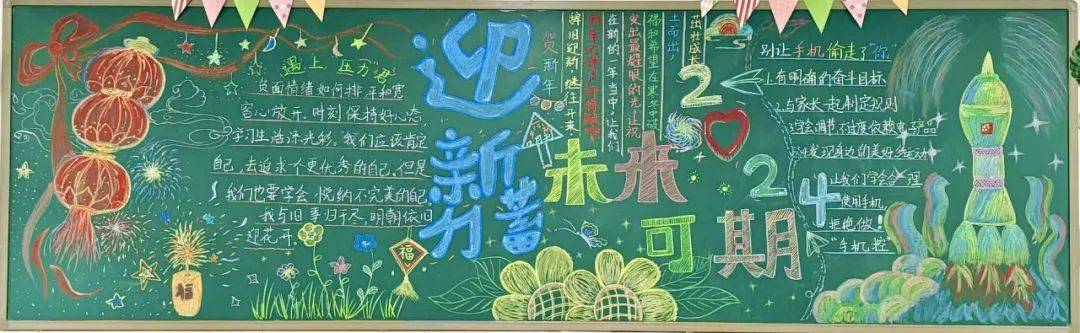 遇上“压力”君
负面情绪如何排 平和宽
容心放开,时刻保持好心态
学习生活流光彩。我们应该肯定
自己,去追求个更优秀的自己,但是
我们也要学会 悦纳不完美的自己
我与旧事归于尽,明朝依旧
迎花开。
福
福
迎新
蓄力
贺新年
未来
可期
2024
茁壮成长
土而出,
福和希望在寒冬中破
发出最耀眼的光,让祝
在新的一年当中,让我们
新年的钟声即将敲响
辞旧迎新,继往开来,
别让手机偷走了“你”
1.有明确的奋斗目标
2.与家长一起制定规则
3.学会调节不过度依赖电子产品
4.发现身边的美好多运动
让我们学会合理
使用手机,
拒绝做!
“手机控”